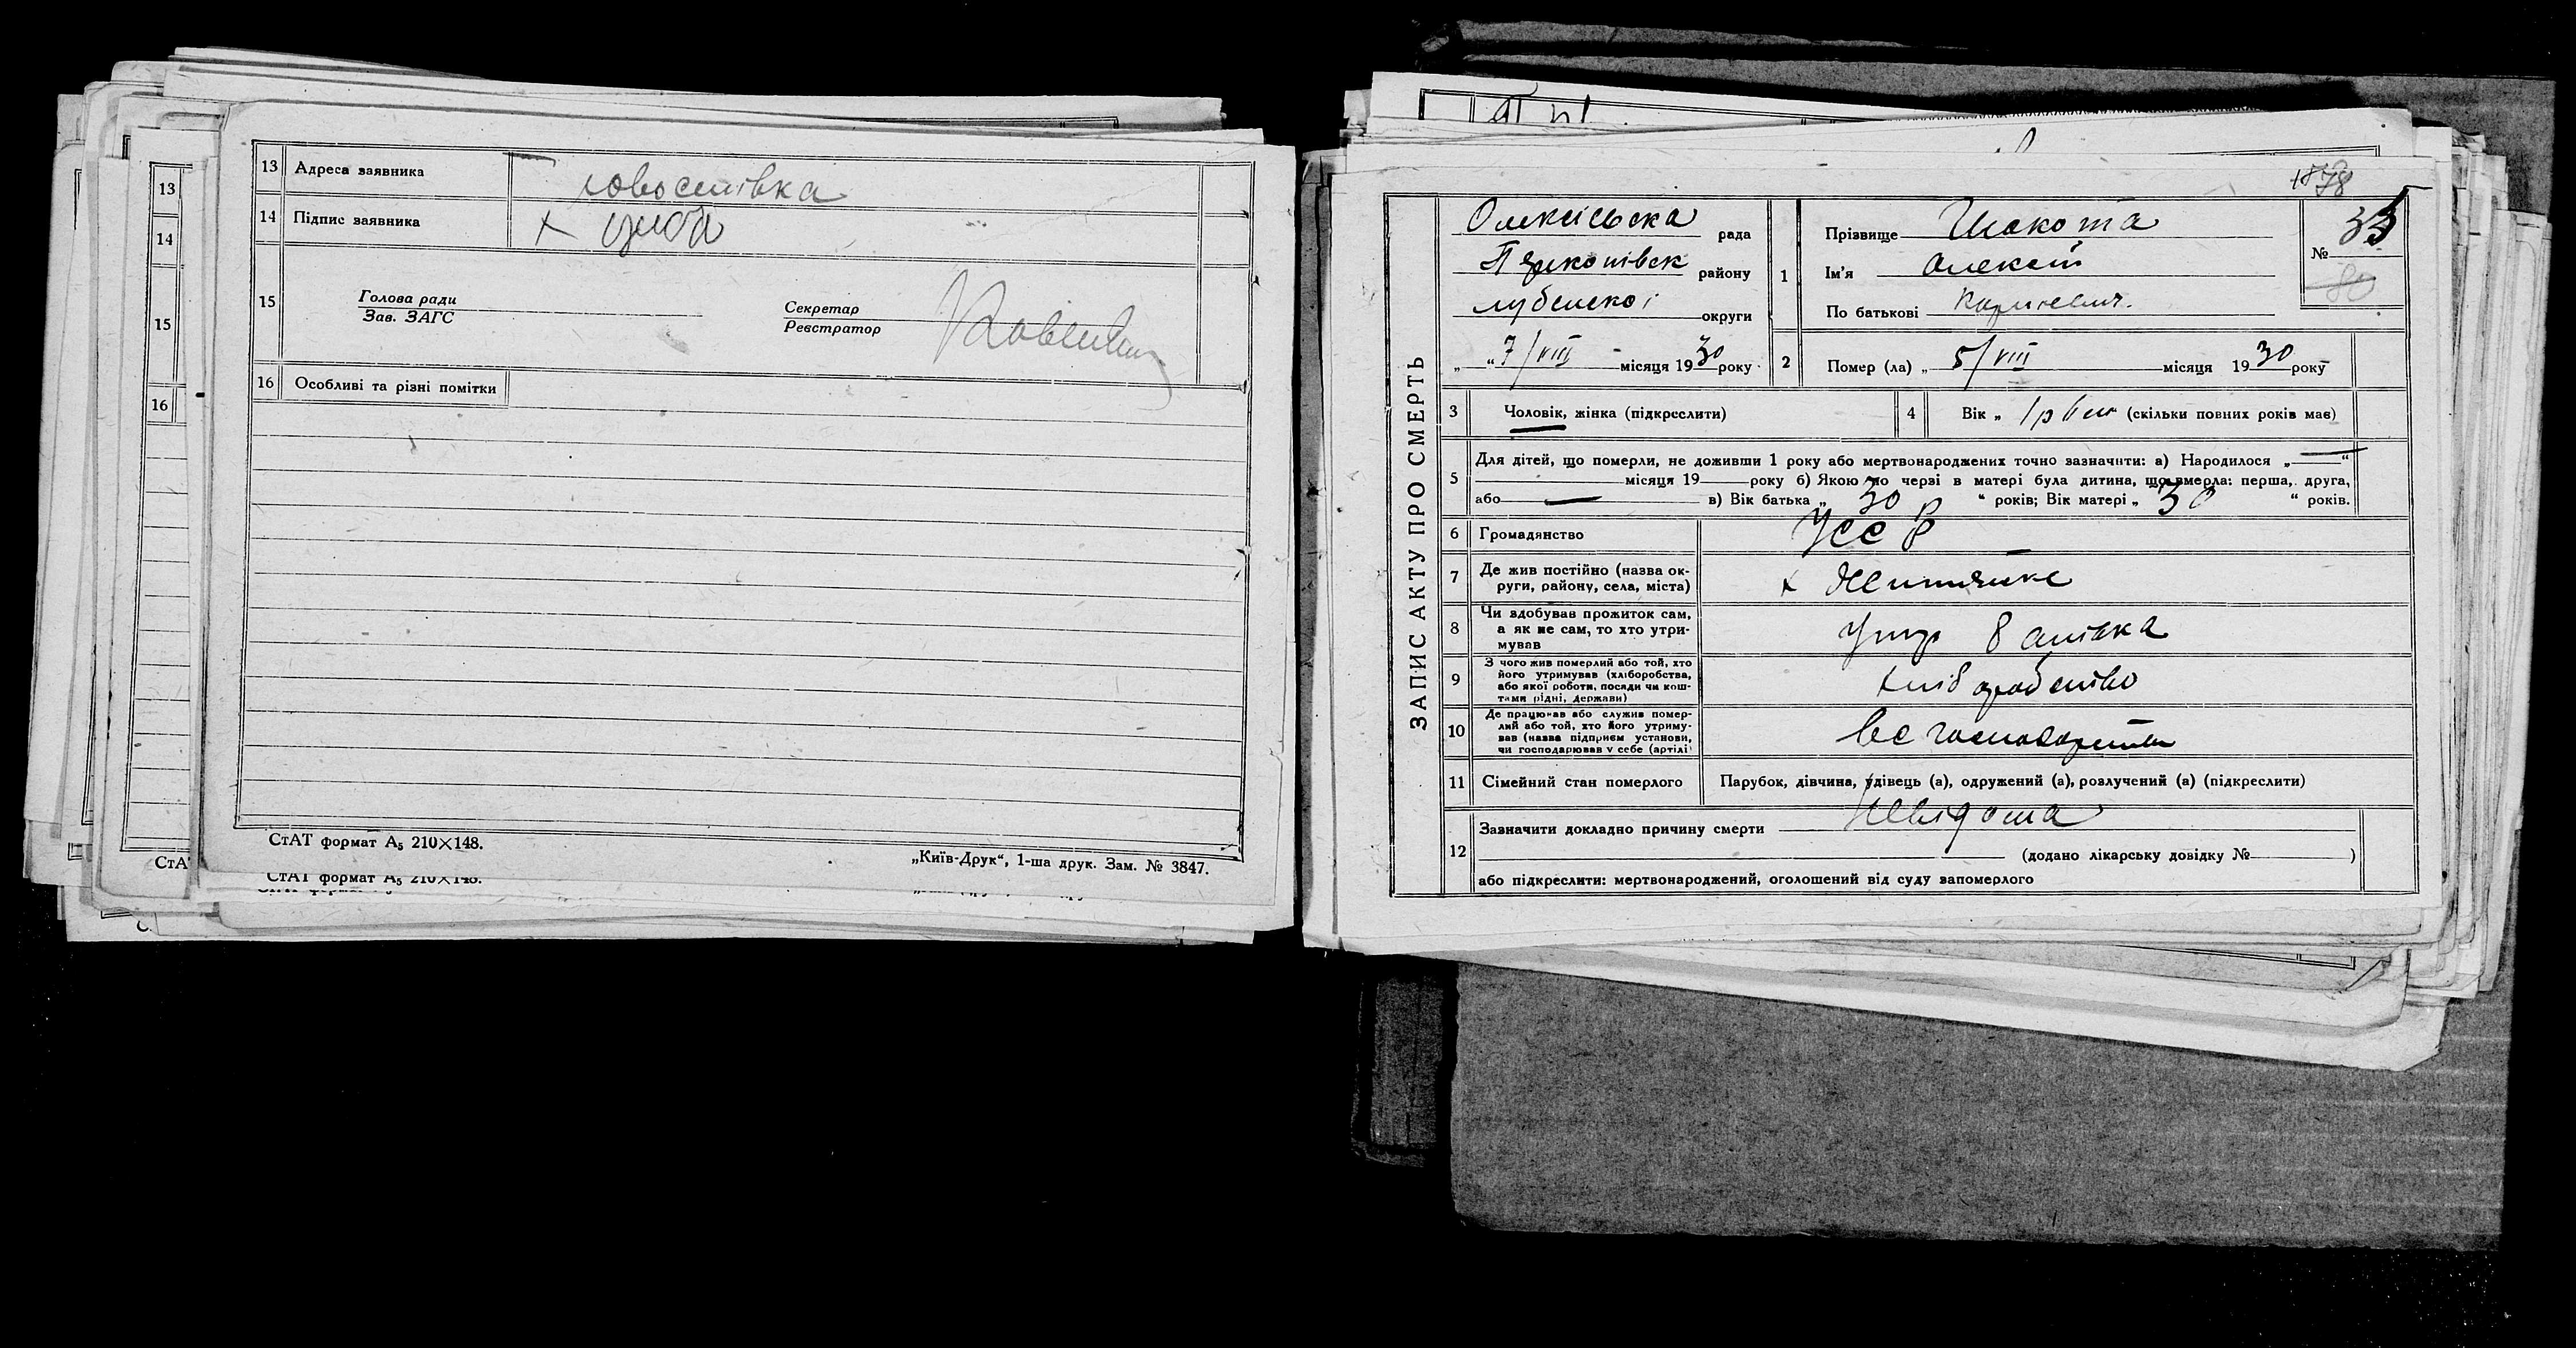 13 Адреса заявника
Новоселівка
14 Підпис заявника
15
Голова ради
Зав. ЗАГС
Секретар
Реєстратор
16 Особливі та різні помітки
СтАТ формат А₅ 210×148.
„Київ-Друк“, 1-ша друк. Зам. № 3847.
13
14
15
16
СтА
СтАТ формат А₅ 210×148.
ЗАПИС АКТУ ПРО СМЕРТЬ
78
Олексіївска рада
району
Лубенскої округи
„ 7/VIII місяця 1930 року
1 Прізвище
Ім'я Олексій
По батькові
№ 33
80
2 Помер (ла) „ 5/VIII місяця 1930 року
3 Чоловік, жінка (підкреслити)
4 Вік „ 1р 6 м “ (скільки повних років має)
5 Для дітей, що померли, не доживши 1 року або мертвонароджених точно зазначити: а) Народилося „ — “
місяця 19 року б) Якою по черзі в матері була дитина, що вмерла: перша, друга,
або — в) Вік батька „ 30 “ років; Вік матері „ 30 “ років.
6 Громадянство УССР
7 Де жив постійно (назва ок-
руги, району, села, міста)
8 Чи здобував прожиток сам,
а як не сам, то хто утри-
мував
Утр батька
9 З чого жив померлий або той, хто
його утримував (хліборобства,
або якої роботи, посади чи кош-
тами рідні, держави)
хліборобство
10 Де працював або служив помер-
лий або той, хто його утриму-
вав (назва підприєм установи,
чи господарював у себе (артілі)
11 Сімейний стан померлого Парубок, дівчина, удівець (а), одружений (а), розлучений (а) (підкреслити)
12 Зазначити докладно причину смерти Невідома
(додано лікарську довідку № )
або підкреслити: мертвонароджений, оголошений від суду запомерлого